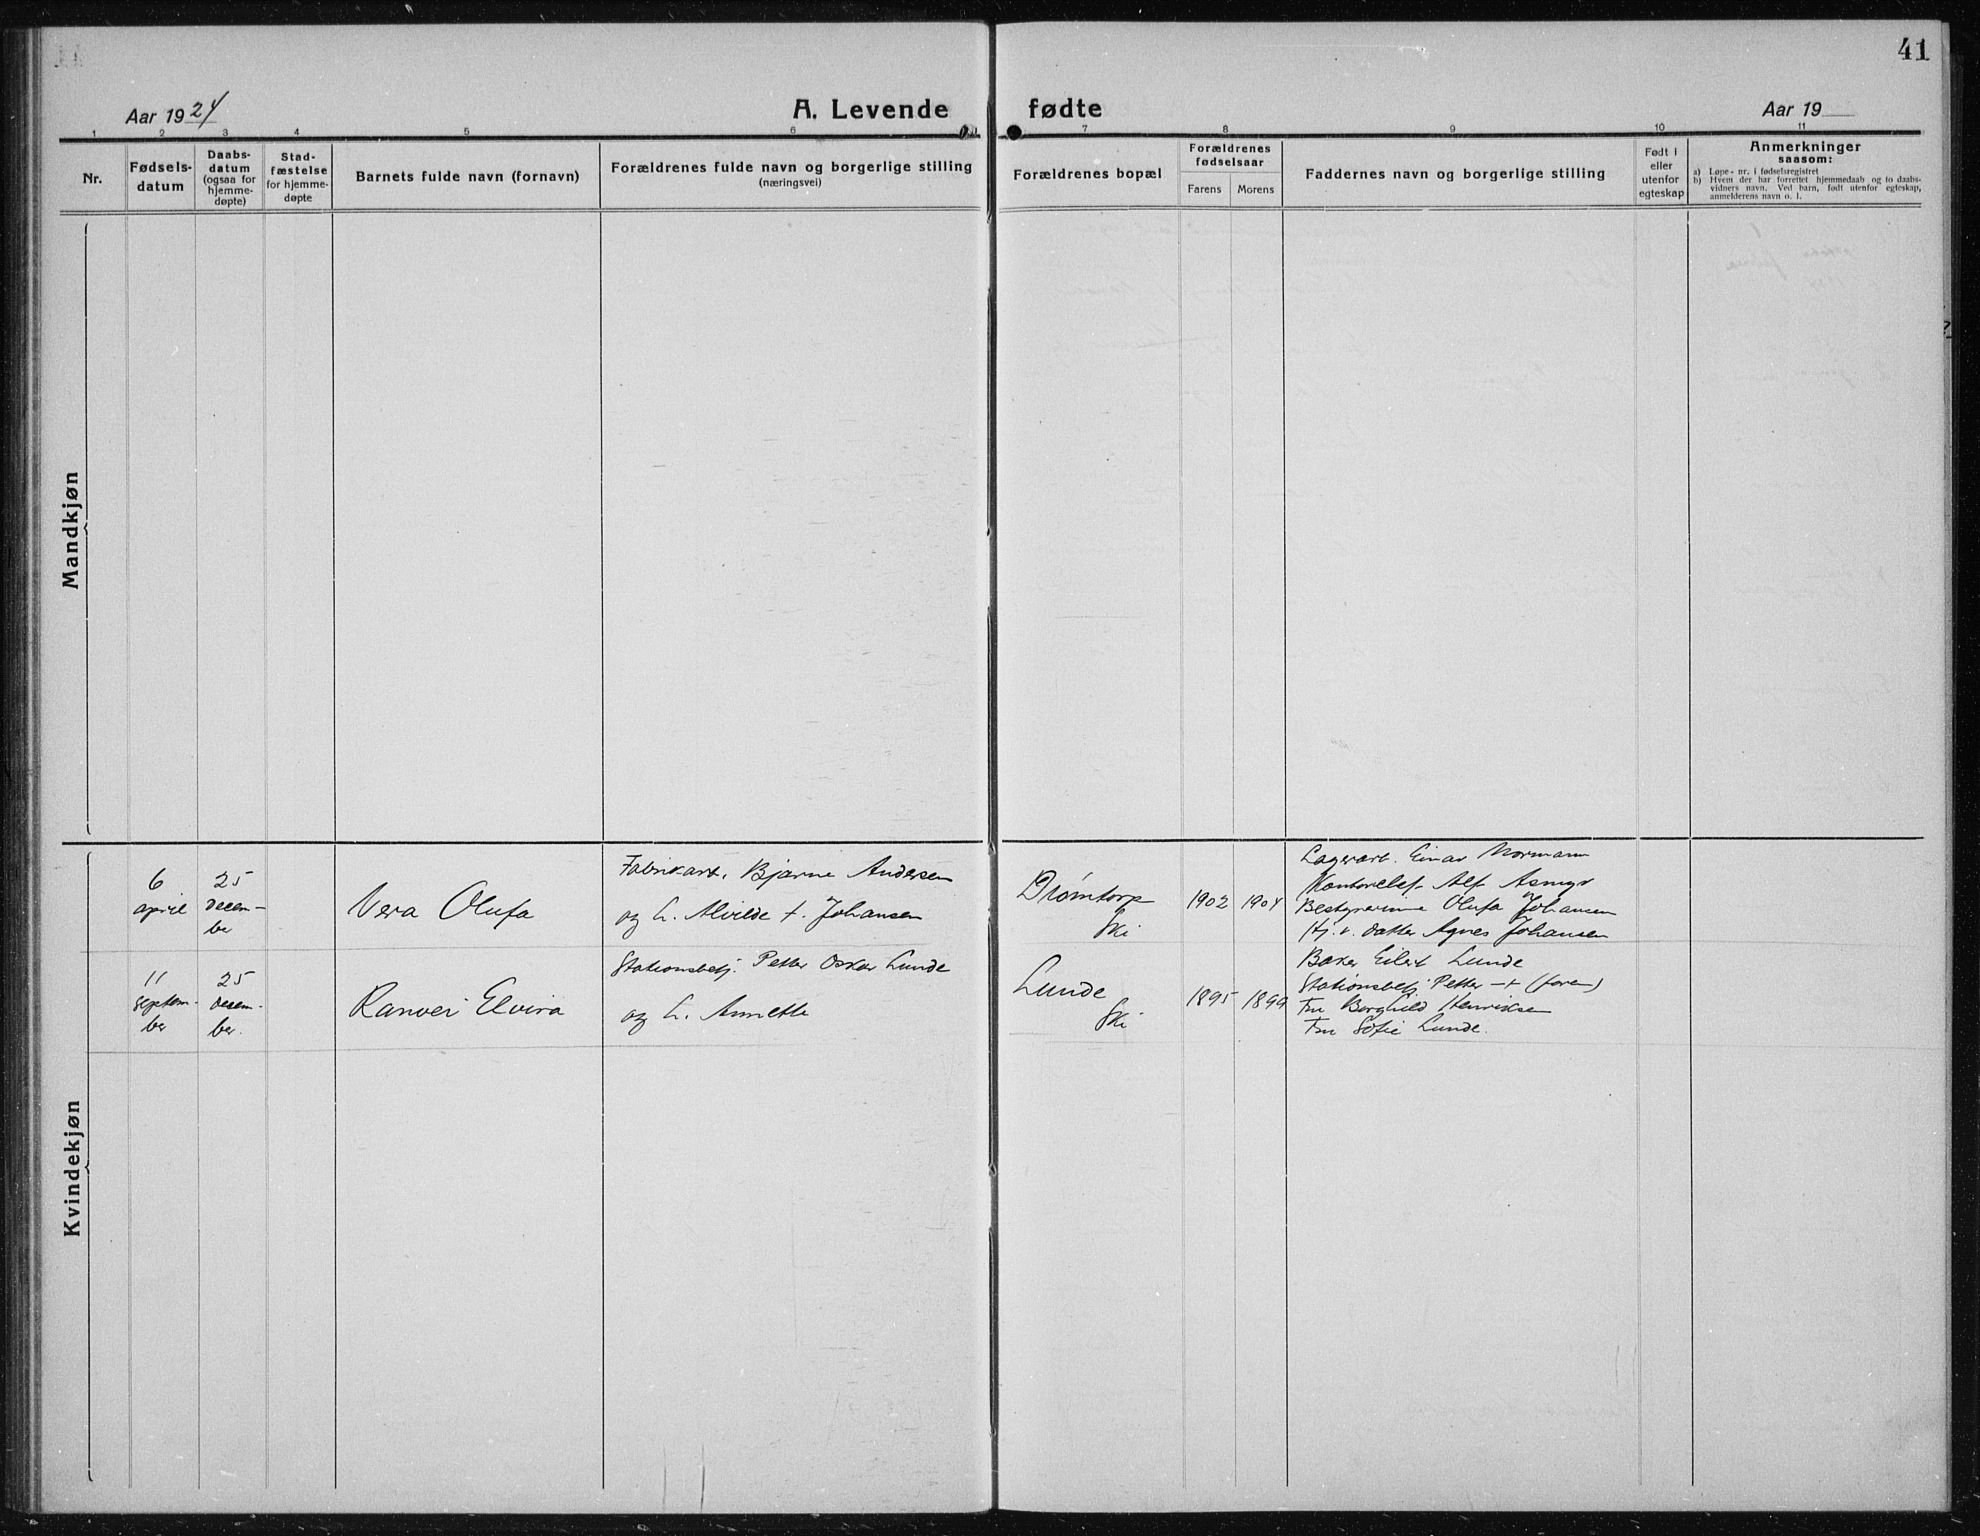 41
Aar 1924
A. Levende fødte
Aar 19
1 2 3 4 5 6 7 8 9 10 11
Nr.
Fødsels-
datum
Daabs-
datum
(ogsaa for
hjemme-
døpte)
Stad-
fæstelse
for hjemme-
døpte
Barnets fulde navn (fornavn)
Forældrenes fulde navn og borgerlige stilling
(næringsvei)
Forældrenes bopæl
Forældrenes
fødselsaar
Farens
Morens
Faddernes navn og borgerlige stilling
Født i
eller
utenfor
egteskap
Anmerkninger
saasom:
a) Løpe-nr. i fødselsregistret
b) Hvem der har forrettet hjemmedaab og to daabs-
vidners navn. Ved barn, født utenfor egteskap,
anmelderens navn o. l.
Mandkjøn
Kvindekjøn
6
april
25
decem-
ber
Vera Olufa
Fabrikarb. Bjarne Andersen
og h. Alvilde f. Johansen
Drømtorp
Ski
1902 1904
Lagerarb. Einar Normann
Kontorchef Alf
Bestyrerinne Olufa Johansen
Hj. v. datter Agnes Johansen
11
septem-
ber
25
decem-
ber.
Ranvei Elvira
Stationsbetj. Petter Oskar Lunde
og h. Annette
Lunde
Ski
1895 1899
Baker Eilert Lunde
Stationsbetj. Petter -"- (faren)
Fru Borghild Henriksen
Fru Sofie Lunde.